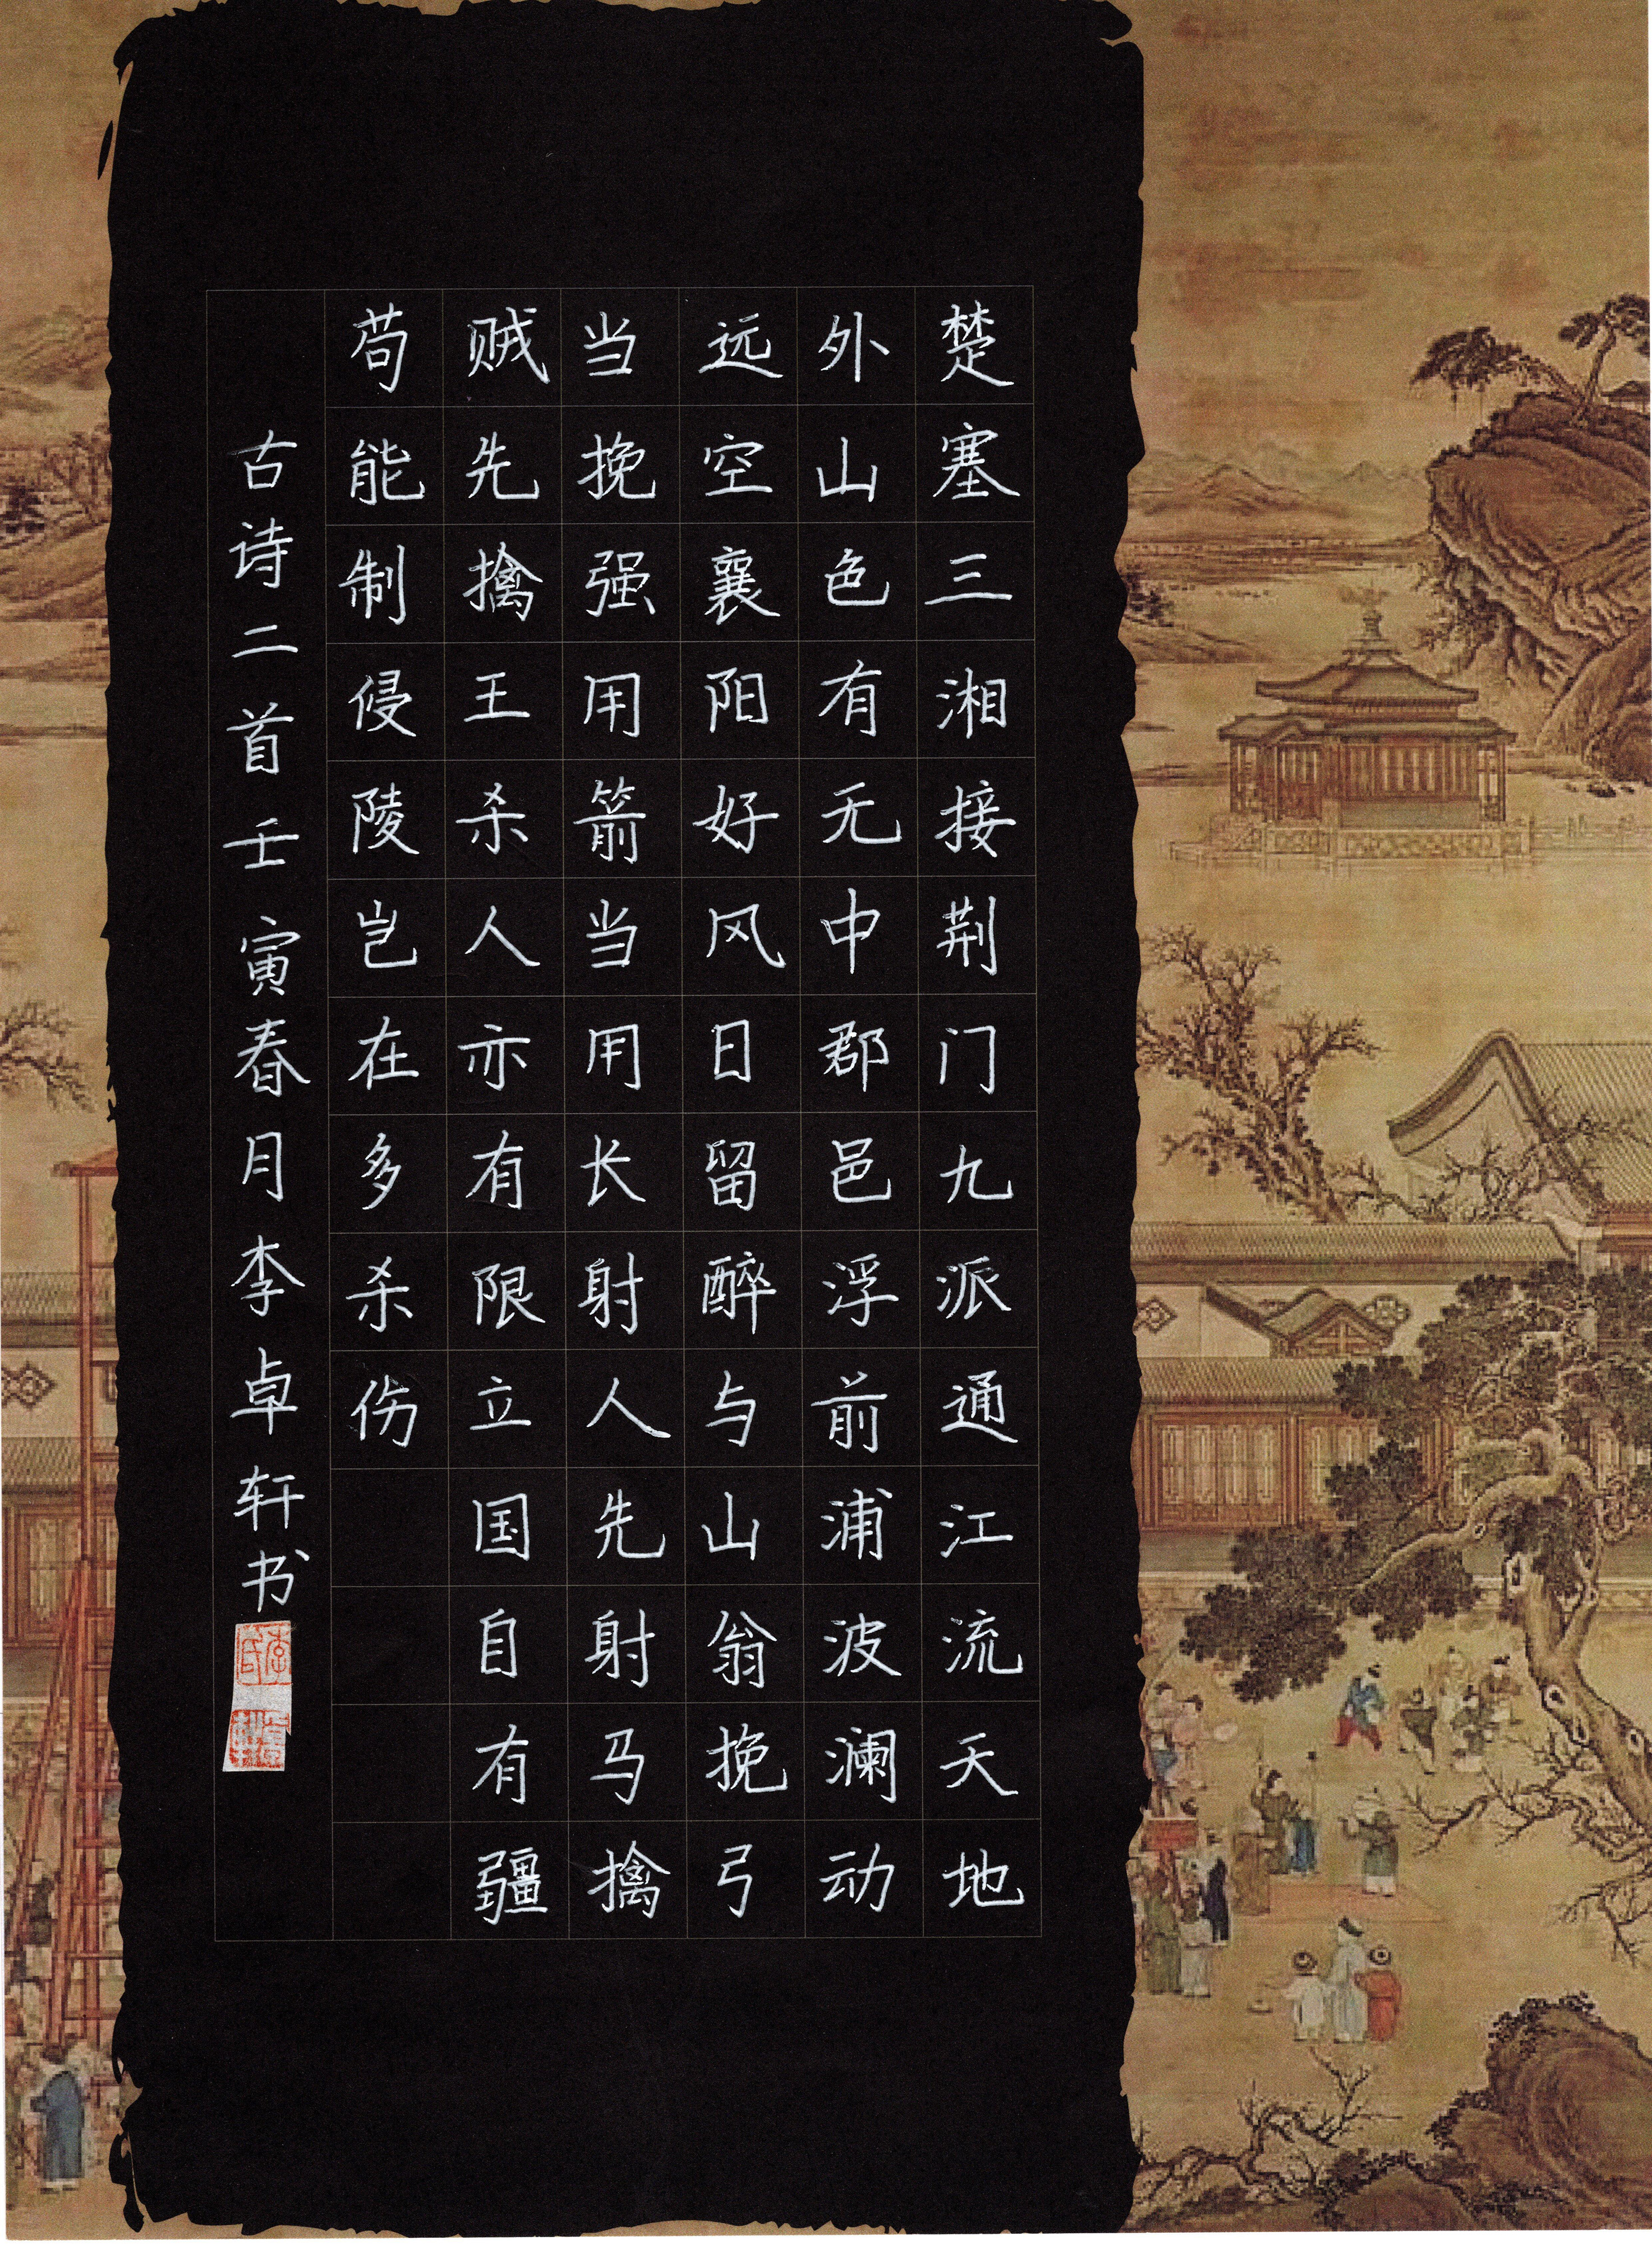 楚塞三湘接荆门九派通江流天地
外山色有无中郡邑浮前浦波澜动
远空襄阳好风日留醉与山翁挽弓
当挽强用箭当用长射人先射马擒
贼先擒王杀人亦有限立国自有疆
苟能制侵陵岂在多杀伤
古诗二首壬寅春月李卓轩书
李氏